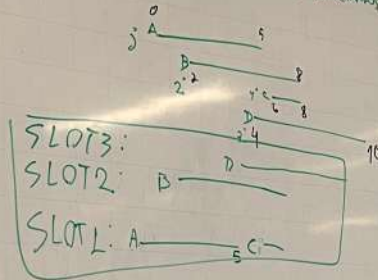 0
3° A 5
B 2 8
2°
1° C 6 8
D
2° 4 10
SLOT3:
SLOT2: B D
SLOT1: A 5 C